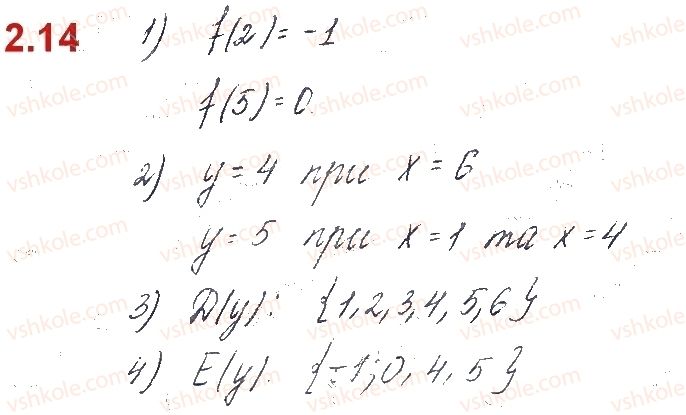 2.14 1) f(2) = -1
f(5) = 0
2) y = 4 при x = 6
y = 5 при x = 1 та x = 4
3) D(y): {1, 2, 3, 4, 5, 6}
4) E(y). {-1; 0, 4, 5}
vshkole.com